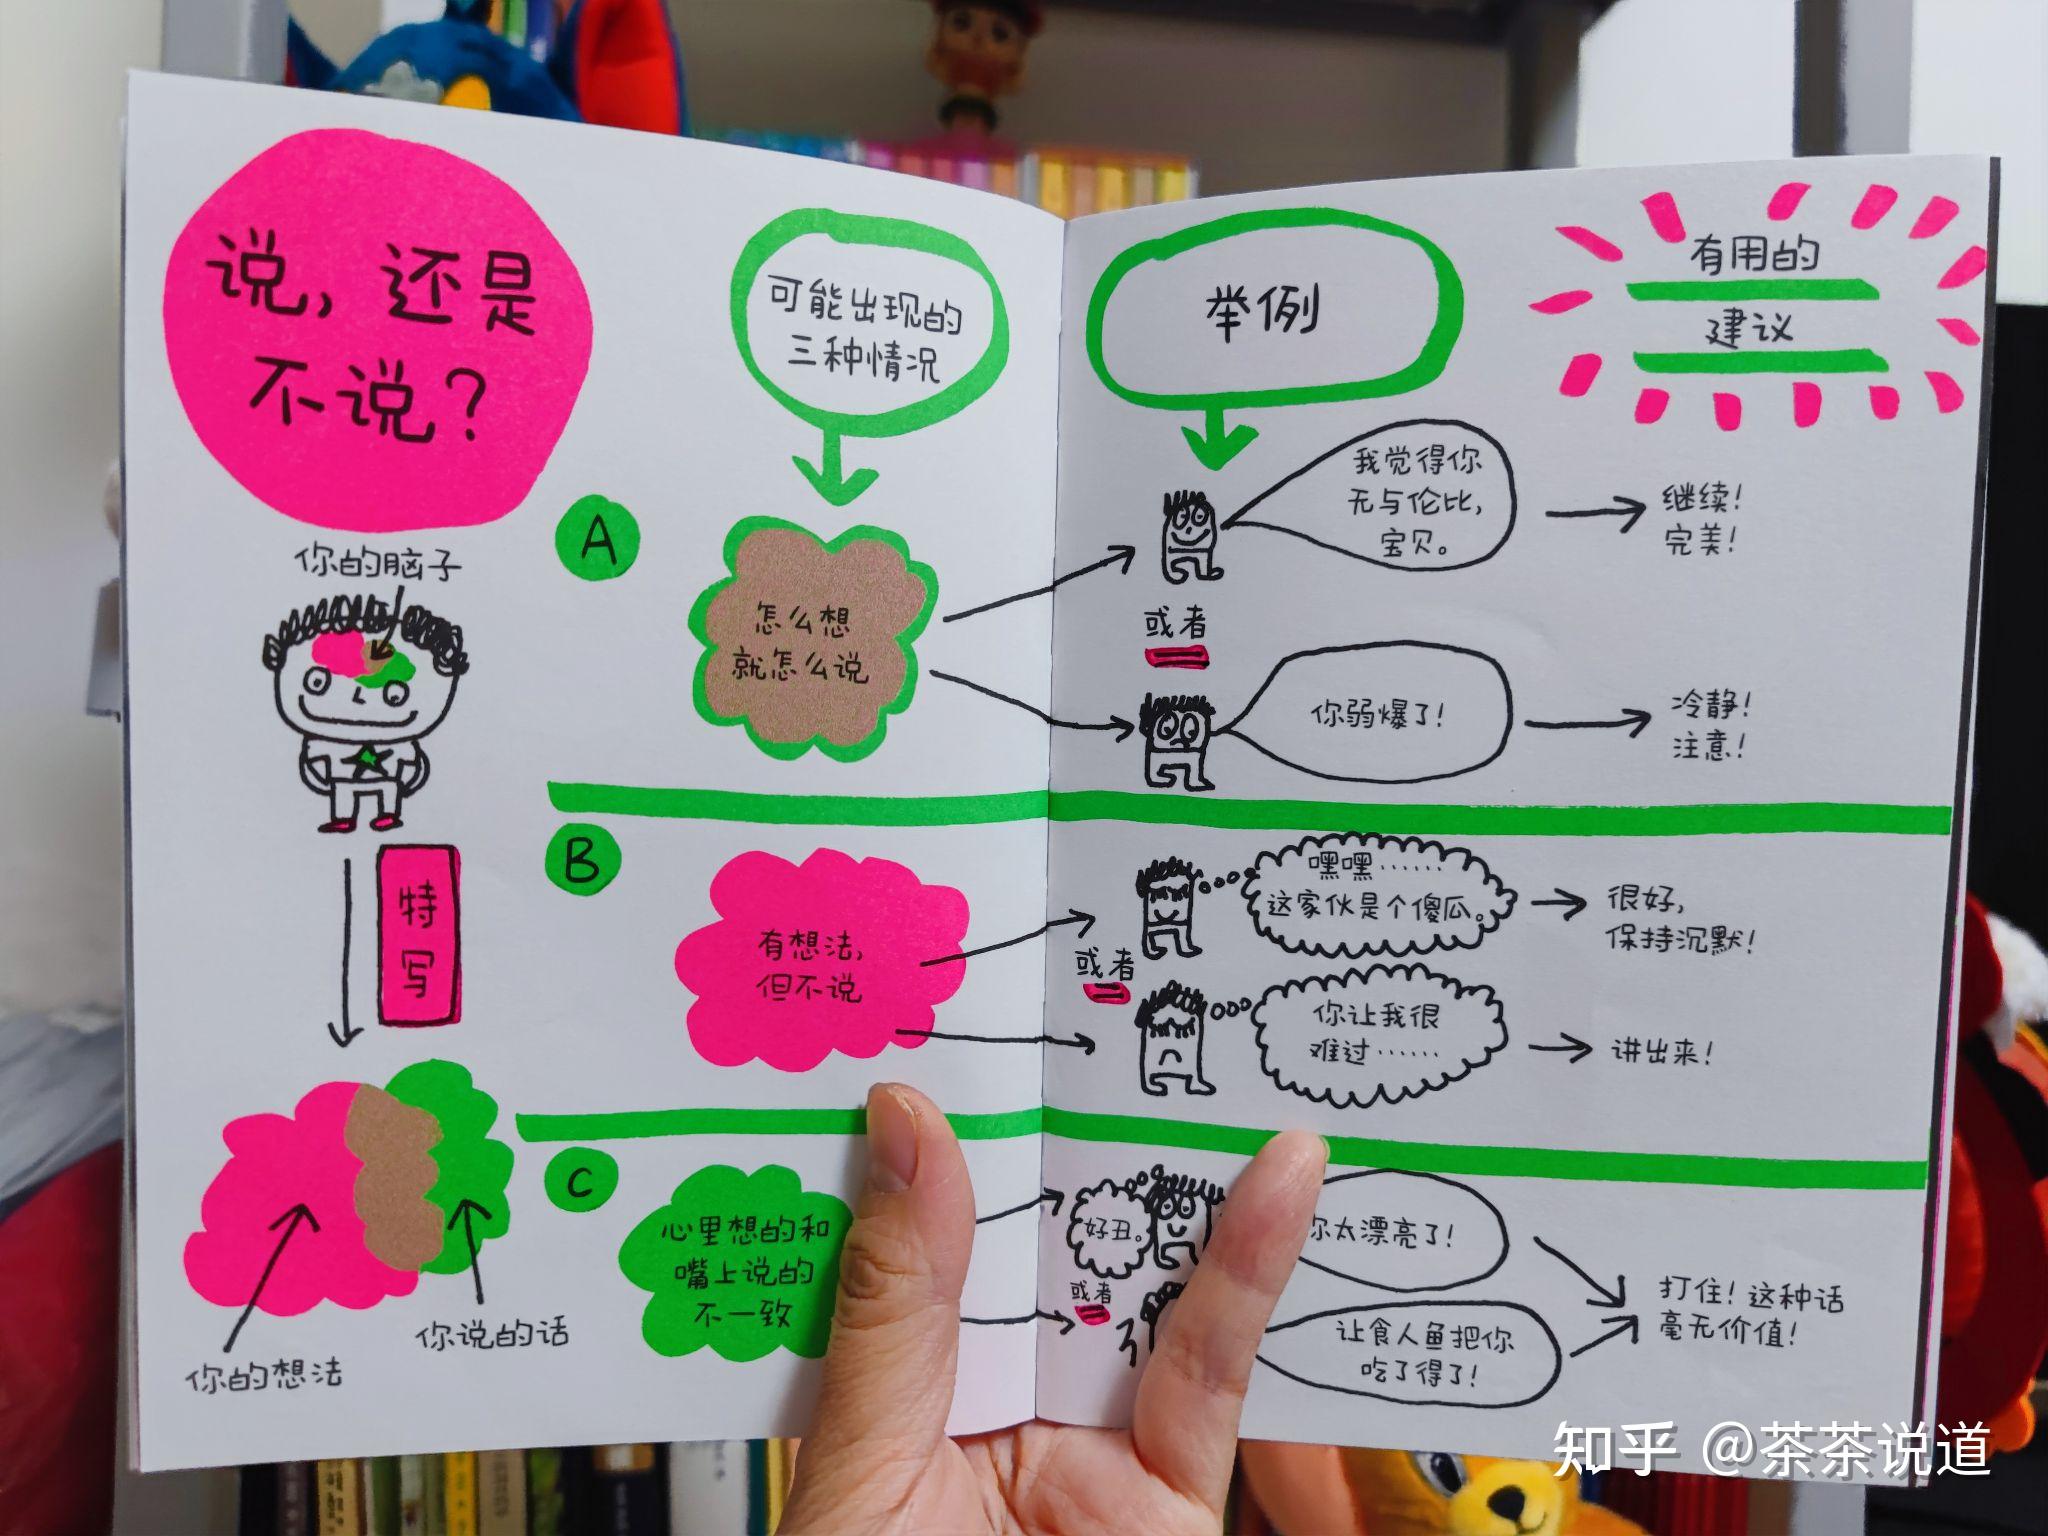 说，还是
不说？
你的脑子
特
写
你的想法
你说的话
可能出现的
三种情况
举例
有用的
建议
A
怎么想
就怎么说
我觉得你
无与伦比，
宝贝。
继续！
完美！
或者
你弱爆了！
冷静！
注意！
B
有想法，
但不说
嘿嘿……
这家伙是个傻瓜。
很好，
保持沉默！
或者
你让我很
难过……
讲出来！
C
心里想的和
嘴上说的
不一致
好丑。
太漂亮了！
或者
让食人鱼把你
吃了得了！
打住！这种话
毫无价值！
知乎 @茶茶说道